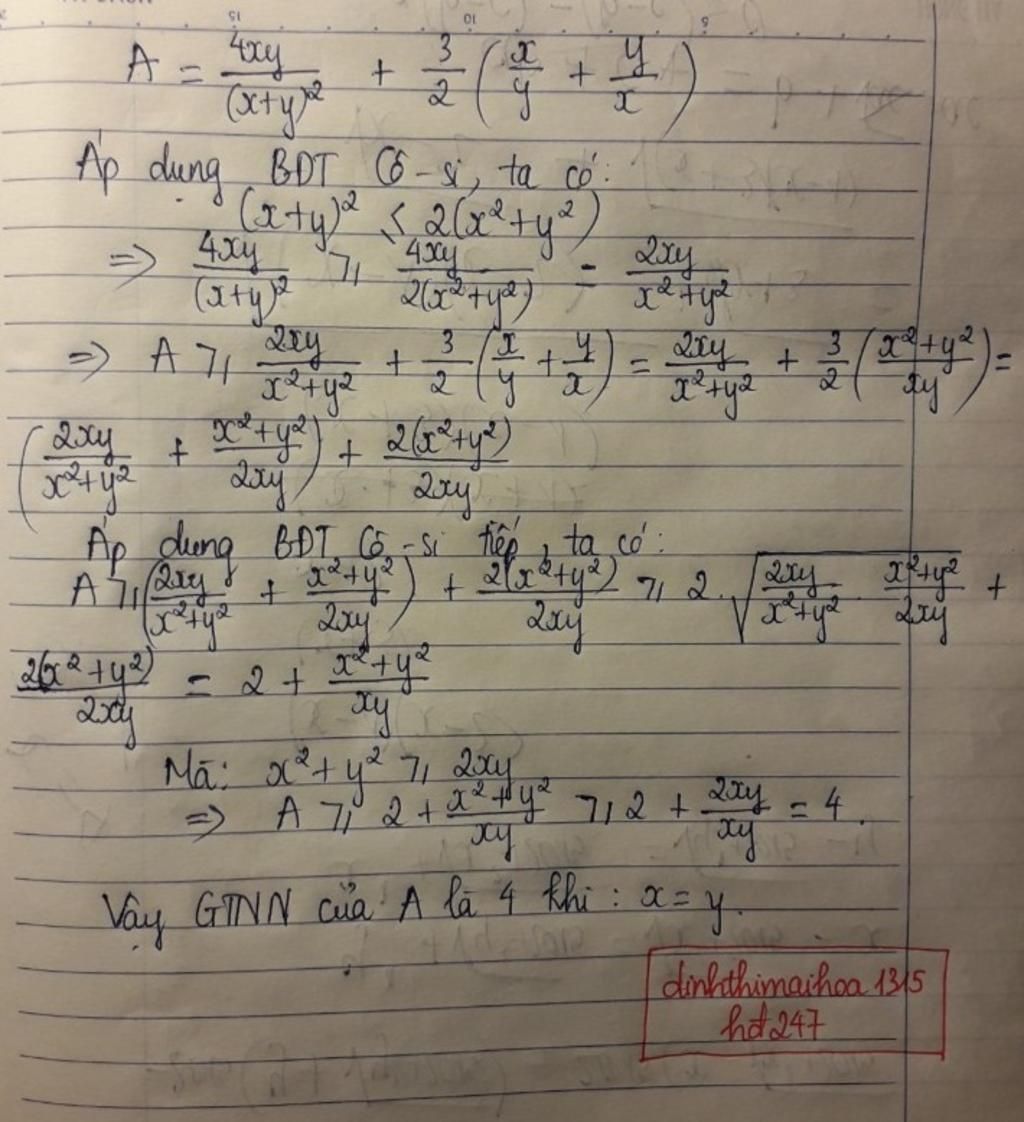 A = 4xy/(x+y)² + 3/2 (x/y + y/x)
Áp dụng BĐT Cô-si, ta có:
(x+y)² ≤ 2(x²+y²)
=> 4xy/(x+y)² ≥ 4xy/2(x²+y²) = 2xy/x²+y²
=> A ≥ 2xy/x²+y² + 3/2 (x/y + y/x) = 2xy/x²+y² + 3/2 (x²+y²/xy) =
(2xy/x²+y² + x²+y²/2xy) + 2(x²+y²)/2xy
Áp dụng BĐT Cô-si tiếp, ta có:
A ≥ (2xy/x²+y² + x²+y²/2xy) + 2(x²+y²)/2xy ≥ 2.√(2xy/x²+y² . x²+y²/2xy) +
2(x²+y²)/2xy = 2 + x²+y²/xy
Mà: x²+y² ≥ 2xy
=> A ≥ 2 + x²+y²/xy ≥ 2 + 2xy/xy = 4.
Vậy GTNN của A là 4 khi: x = y.
dinhthimaihoa 1315
hđ247